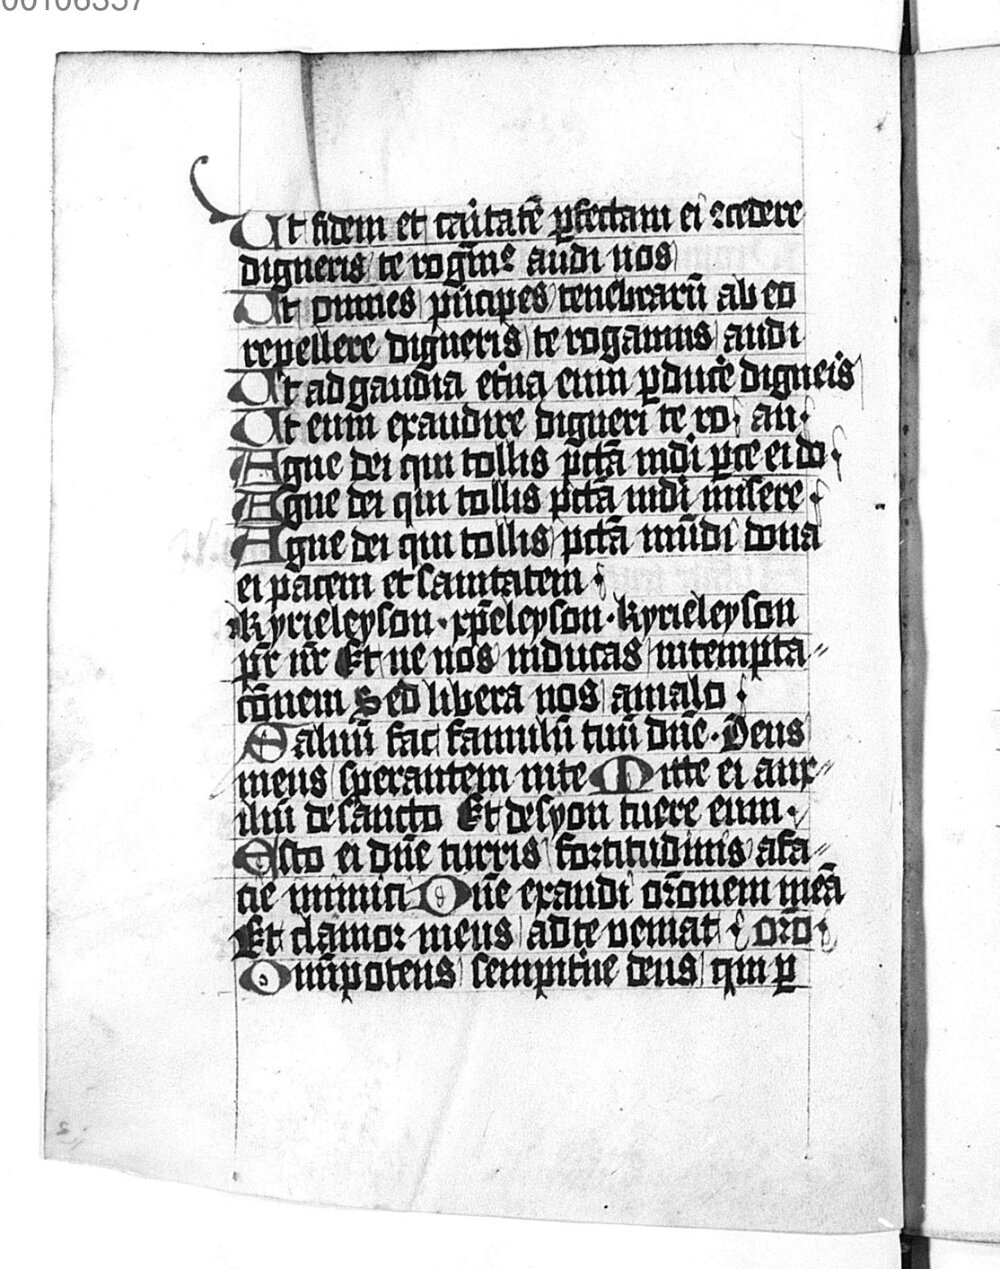 00106357
Ut fidem et caritatē ꝑfectam ei ꝯcedere
digneris te rogamꝰ audi nos
Ut omnes principes tenebrarū ab eo
repellere digneris te rogamus audi
Ut ad gaudia et̄na eum ꝑducē digneis
Ut eum exaudire digneri te ro. au.
Agne dei qui tollis pctā mdi ꝑce ei do
Agne dei qui tollis pctā mdi misere
Agne dei qui tollis pctā mūdi dona
ei pacem et sanitatem
Kyrieleyson. xp̄eleyson. kyrieleyson
pr̄ nr̄ Et ne nos inducas intempta
cōnem Sed libera nos amalo
Saluū fac famulū tuū dn̄e. Deus
meus sperantem inte Mitte ei aux
iliū de sancto Et desyon tuere eum.
Esto ei dn̄e turris fortitudinis afa
cie inimici Dn̄e exaudi or̄onem meā
Et clamor meus adte veniat oro
Om̄ipotens sempit̄ne deus qui ꝑ